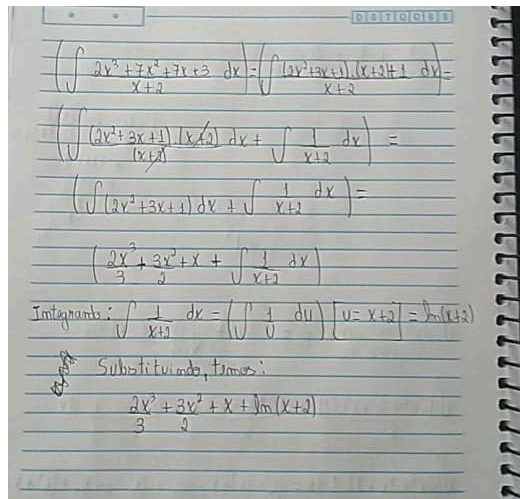 D S T Q Q S S
(∫ (2x³+7x²+7x+3)/(x+2) dx) = (∫ ((2x²+3x+1).(x+2)+1)/(x+2) dx) =
(∫ ((2x²+3x+1).(x+2))/(x+2) dx + ∫ 1/(x+2) dx) =
(∫ (2x²+3x+1) dx + ∫ 1/(x+2) dx) =
(2x³/3 + 3x²/2 + x + ∫ 1/(x+2) dx)
Integrando: ∫ 1/(x+2) dx = (∫ 1/U du) [U = x+2] = ln(x+2)
Substituindo, temos:
2x³/3 + 3x²/2 + x + ln(x+2)